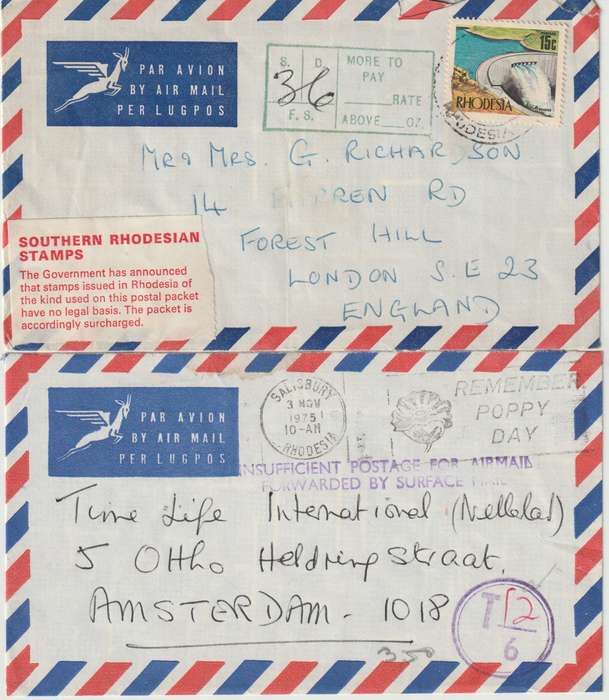 PAR AVION
BY AIR MAIL
PER LUGPOS
S. D.
36
F. S.
MORE TO
PAY
RATE
ABOVE OZ.
15c
RHODESIA
RHODESIA
MR & MRS. G. RICHARDSON
14 RD
FOREST HILL
LONDON S.E 23
ENGLAND
SOUTHERN RHODESIAN
STAMPS
The Government has announced
that stamps issued in Rhodesia of
the kind used on this postal packet
have no legal basis. The packet is
accordingly surcharged.
PAR AVION
BY AIR MAIL
PER LUGPOS
SALISBURY
3 NOV
1975
10-AM
RHODESIA
REMEMBER
POPPY
DAY
INSUFFICIENT POSTAGE FOR AIRMAIL
FORWARDED BY SURFACE MAIL
Time Life International (Nederland)
5 Ottho Heldringstraat.
AMSTERDAM - 1018
T 12
6
350